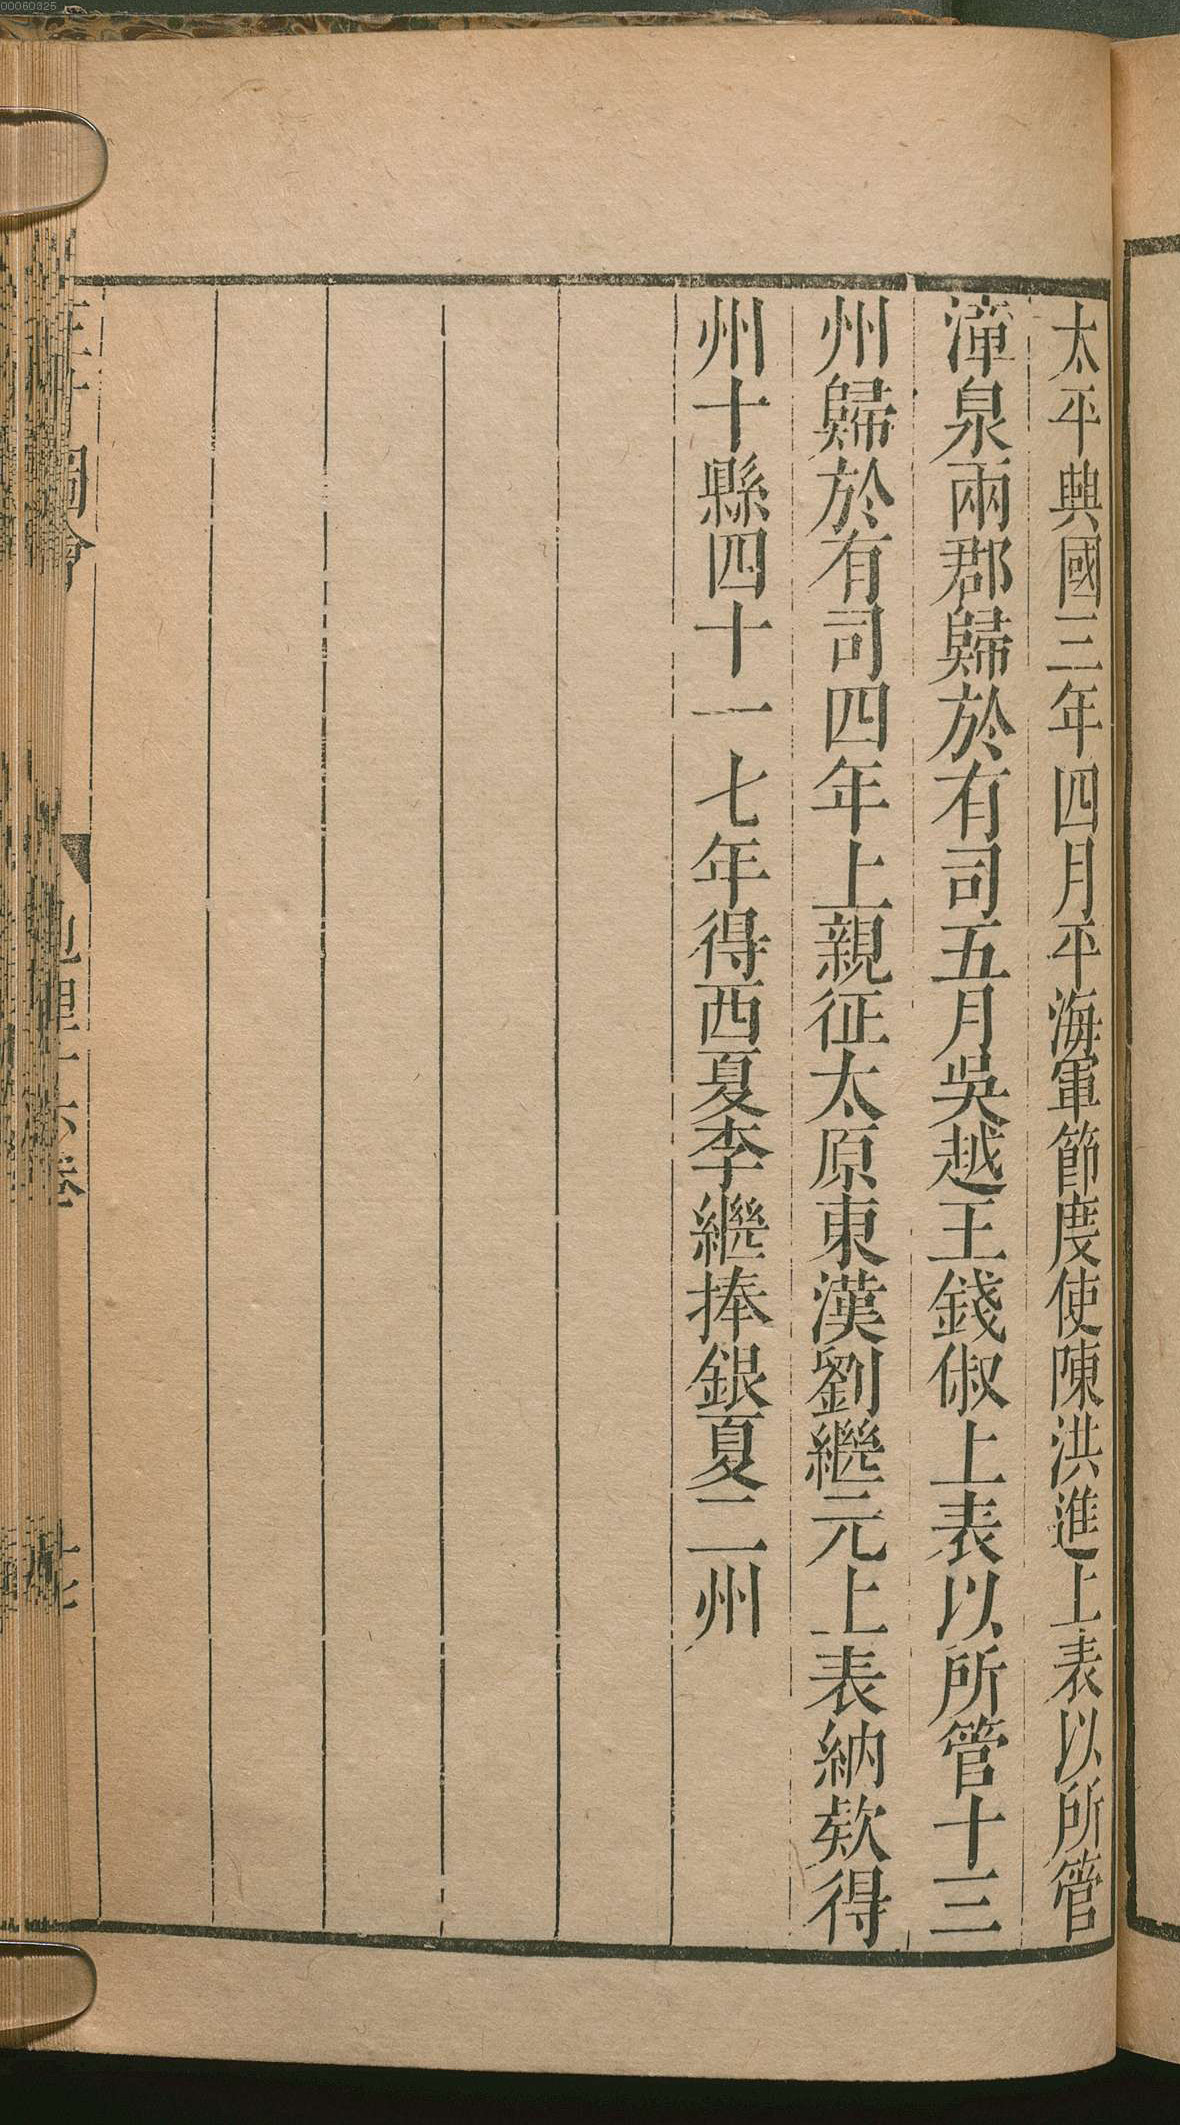 太平興國三年四月平海軍節度使陳洪進上表以所管
漳泉兩郡歸於有司五月吳越王錢俶上表以所管十三
州歸於有司四年上親征太原東漢劉繼元上表納欵得
州十縣四十一七年得西夏李繼捧銀夏二州
00060325